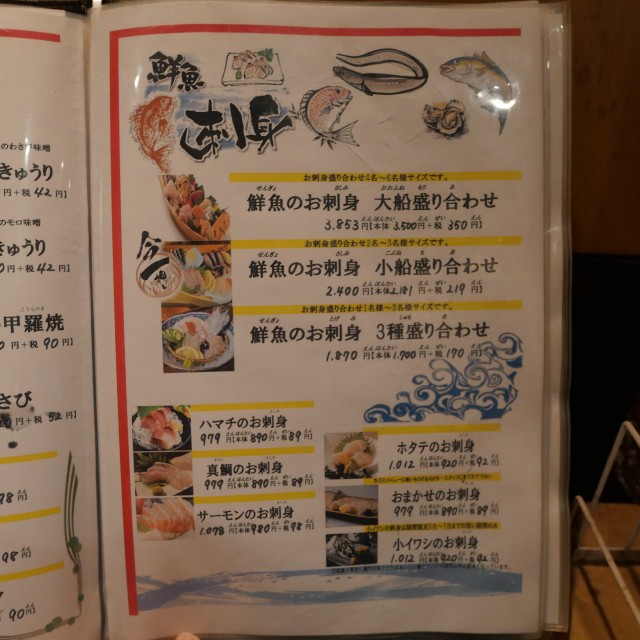 のわさび味噌
きゅうり
円+税 42円]
のモロ味噌
きゅうり
円+税 42円]
甲羅焼
円+税 90円]
さび
円+税 52円]
98円]
98円]
90円]
鮮魚
お刺身
お刺身盛り合わせ4名〜6名様サイズです。
鮮魚のお刺身 大船盛り合わせ
3,853円[本体 3,500円+税 350円]
お刺身盛り合わせ2名〜3名様サイズです。
鮮魚のお刺身 小船盛り合わせ
2,400円[本体 2,181円+税 219円]
お刺身盛り合わせ1名〜3名様サイズです。
鮮魚のお刺身 3種盛り合わせ
1,870円[本体 1,700円+税 170円]
ハマチのお刺身
979円[本体 890円+税 89円]
真鯛のお刺身
979円[本体 890円+税 89円]
サーモンのお刺身
1,078円[本体 980円+税 98円]
ホタテのお刺身
1,012円[本体 920円+税 92円]
おまかせのお刺身
979円[本体 890円+税 89円]
小イワシのお刺身
1,012円[本体 920円+税 92円]